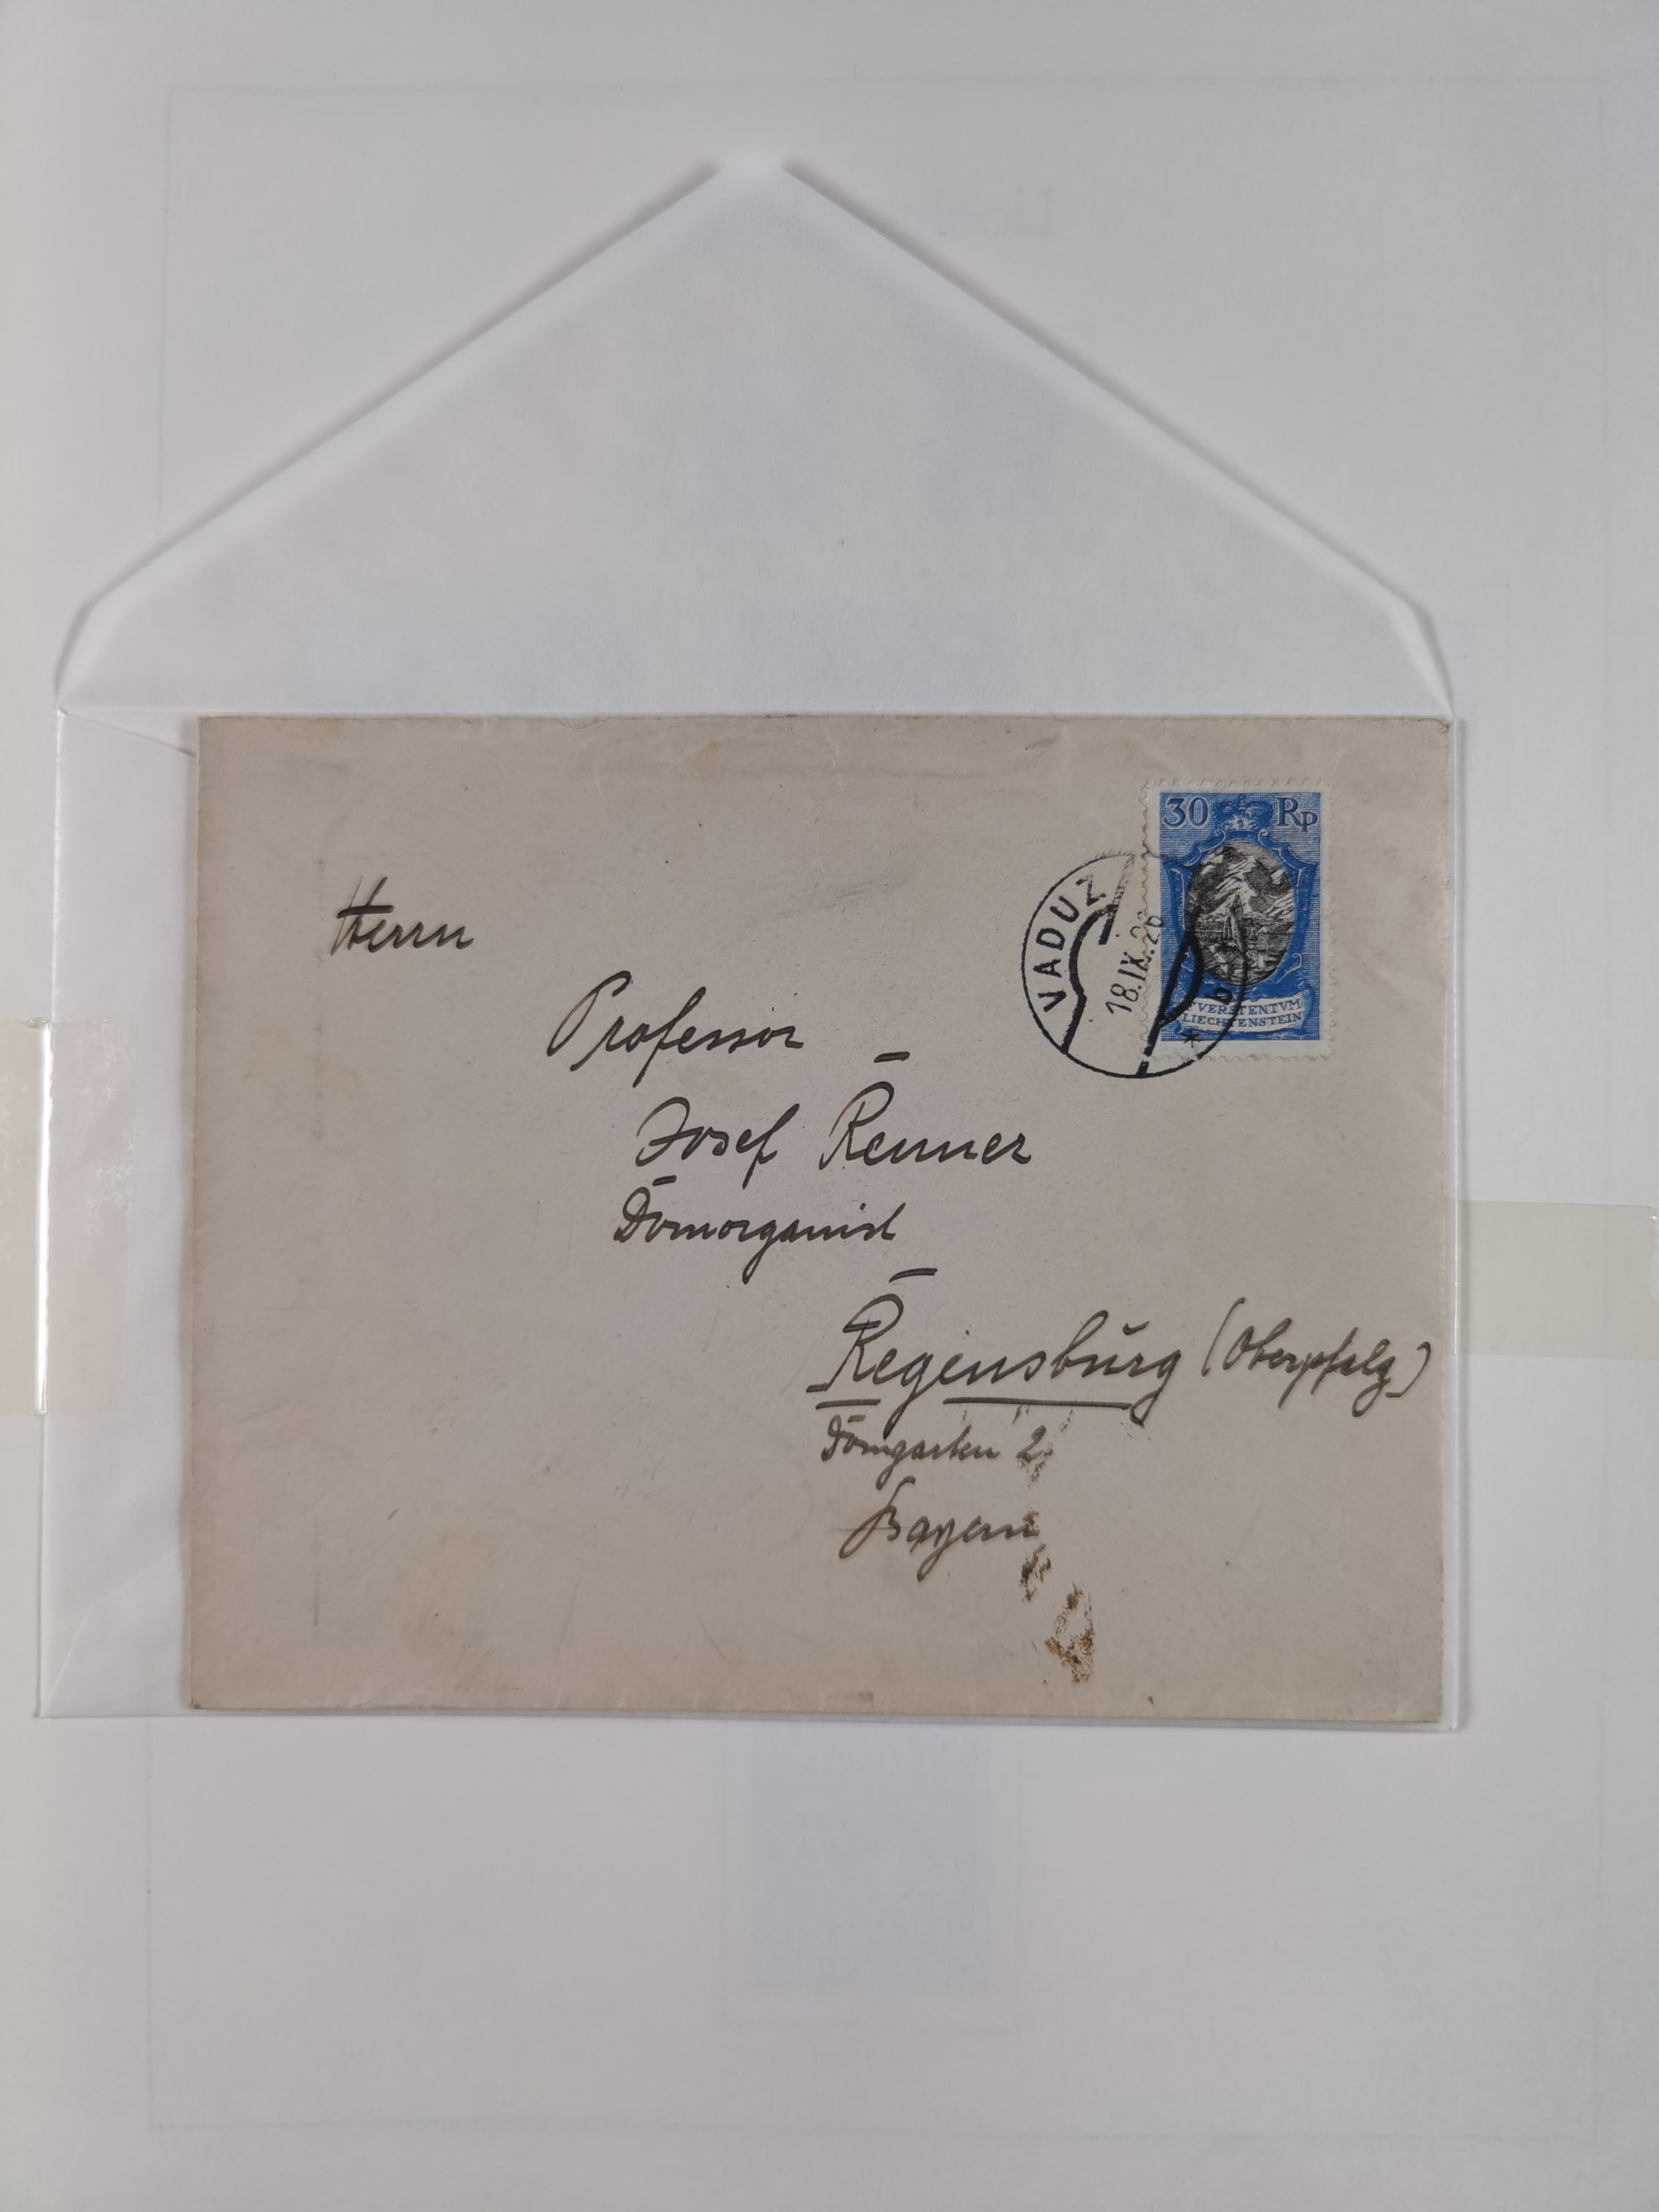 30 Rp
FVERSTENTVM
LIECHTENSTEIN
VADUZ
18.IX.26
Herrn
Professor
Josef Renner
Domorganist
Regensburg (Oberpfalz)
Domgarten 2
Bayern